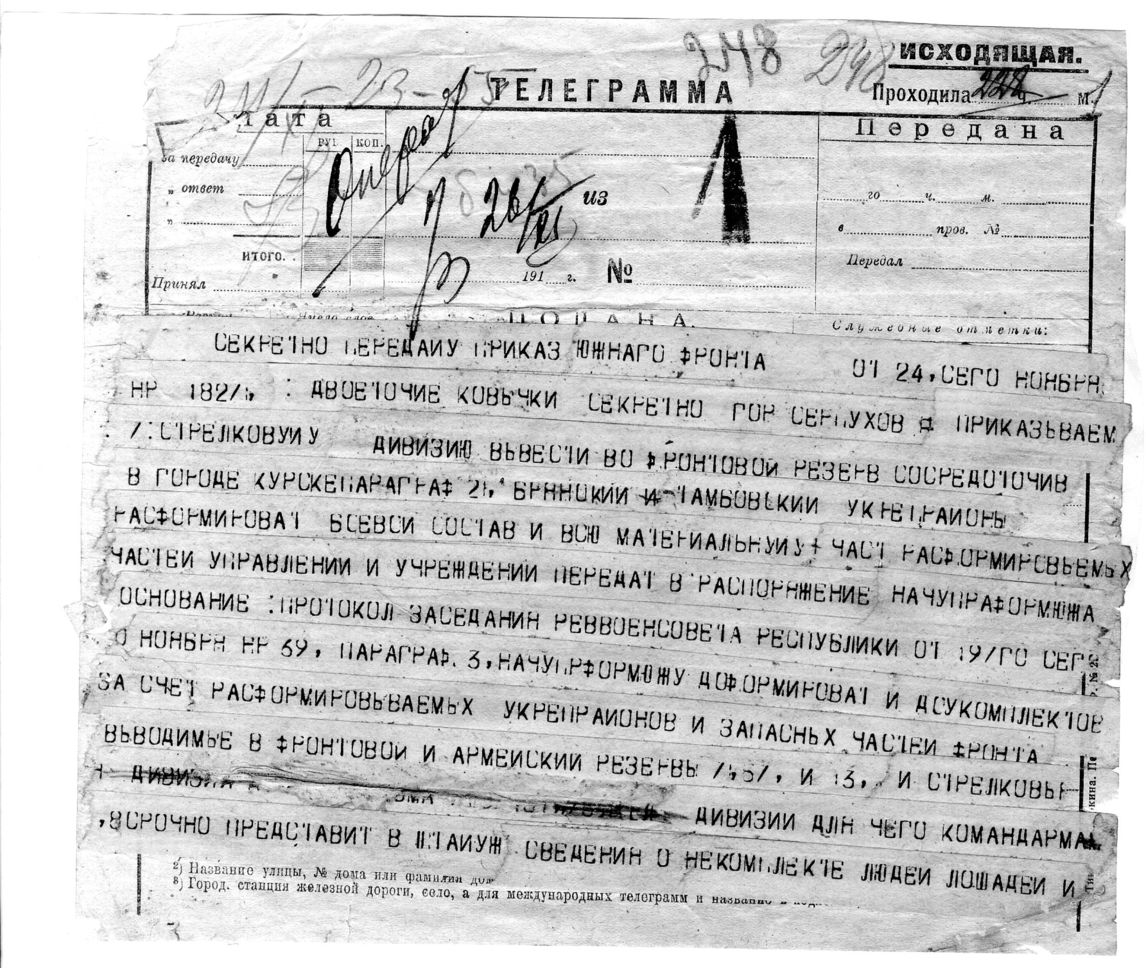 248
ИСХОДЯЩАЯ.
ТЕЛЕГРАММА
Проходила 222 ч. м.
Передана
РУБ. КОП.
за передачу
„ ответ
26/XI из
го ч. м.
„
в пров. №
ИТОГО.
Передал
Принял
191 г. №
ПОДАНА.
Служебные отметки:
СЕКРЕТНО ПЕРЕДАЮ ПРИКАЗ ЮЖНАГО ФРОНТА ОТ 24, СЕГО НОЯБРЯ
НР 182/ : ДВОЕТОЧИЕ КОВЫЧКИ СЕКРЕТНО ГОР СЕРПУХОВ ПРИКАЗЫВАЕМ
/: СТРЕЛКОВУЮ ДИВИЗИЮ ВЫВЕСТИ ВО ФРОНТОВОЙ РЕЗЕРВ СОСРЕДОТОЧИВ
В ГОРОДЕ КУРСКЕПАРАГРАФ 2 БРЯНСКИЙ И ТАМБОВСКИЙ УКРЕПРАЙОНЫ
РАСФОРМИРОВАТ БОЕВОЙ СОСТАВ И ВСЮ МАТЕРИАЛЬНУЮ ЧАСТ РАСФОРМИРОВЫЕМЫХ
ЧАСТЕЙ УПРАВЛЕНИИ И УЧРЕЖДЕНИИ ПЕРЕДАТ В РАСПОРЯЖЕНИЕ НАЧУПРАФОРМЮЖА
ОСНОВАНИЕ : ПРОТОКОЛ ЗАСЕДАНИЯ РЕВВОЕНСОВЕТА РЕСПУБЛИКИ ОТ 19/ГО СЕГ
О НОЯБРЯ НР 69, ПАРАГРАФ. 3, НАЧУПРФОРМЮЖУ ДОФОРМИРОВАТ И ДОУКОМПЛЕКТОВ
ЗА СЧЕТ РАСФОРМИРОВЫВАЕМЫХ УКРЕПРАЙОНОВ И ЗАПАСНЫХ ЧАСТЕЙ ФРОНТА
ВЫВОДИМЫЕ В ФРОНТОВОЙ И АРМЕЙСКИЙ РЕЗЕРВЫ И 13, И СТРЕЛКОВЫ
ДИВИЗИИ ДЛЯ ЧЕГО КОМАНДАРМАМ
, 8 СРОЧНО ПРЕДСТАВИТ В ШТАЮЖ СВЕДЕНИЯ О НЕКОМПЛЕКТЕ ЛЮДЕЙ ЛОШАДЕЙ И
2) Название улицы, № дома или фамилии
3) Город. станция железной дороги, село, а для международных телеграмм и название